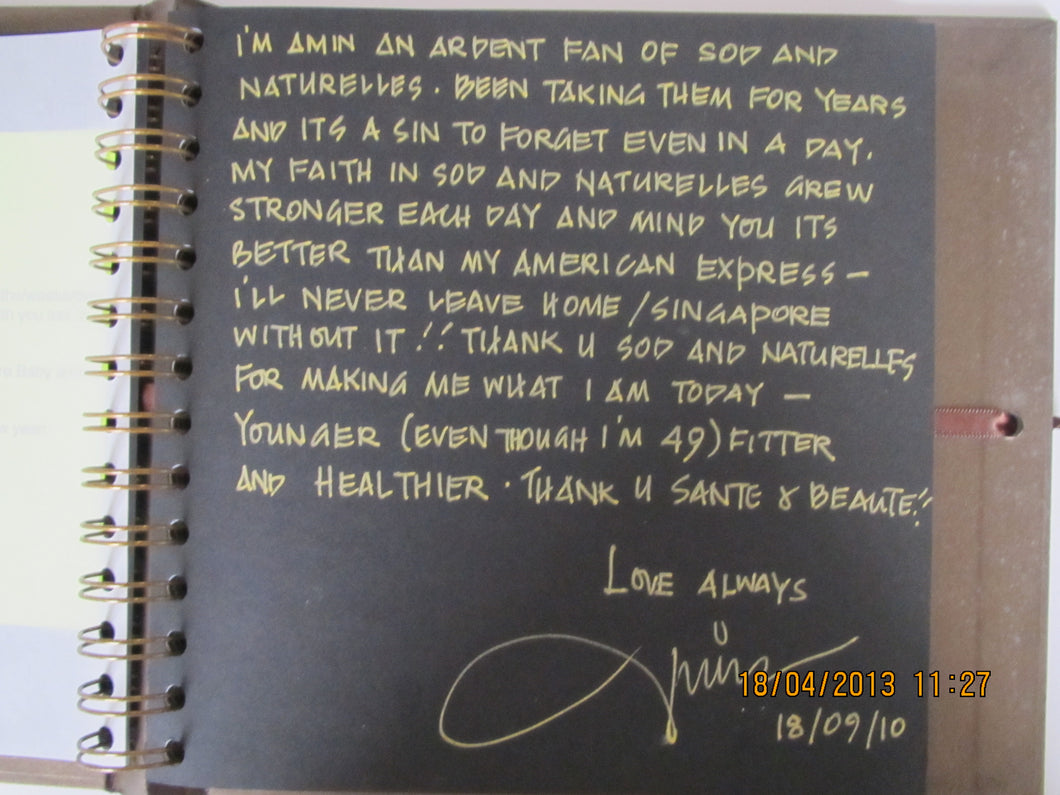 I'M AMIN AN ARDENT FAN OF SOD AND
NATURELLES. BEEN TAKING THEM FOR YEARS
AND ITS A SIN TO FORGET EVEN IN A DAY.
MY FAITH IN SOD AND NATURELLES GREW
STRONGER EACH DAY AND MIND YOU ITS
BETTER THAN MY AMERICAN EXPRESS –
I'LL NEVER LEAVE HOME/SINGAPORE
WITHOUT IT!! THANK U SOD AND NATURELLES
FOR MAKING ME WHAT I AM TODAY –
YOUNGER (EVEN THOUGH I'M 49) FITTER
AND HEALTHIER. THANK U SANTE & BEAUTE!!
LOVE ALWAYS
18/04/2013 11:27
18/09/10